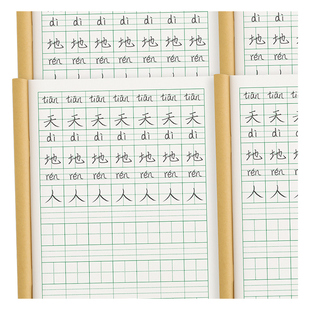 dì dì dì dì dì dì dì
地 地 地 地 地 地 地
rén rén rén rén rén rén rén
dì dì dì
地 地 地
rén rén rén
tiān tiān tiān tiān tiān tiān tiān
天 天 天 天 天 天 天
dì dì dì dì dì dì dì
地 地 地 地 地 地 地
rén rén rén rén rén rén rén
人 人 人 人 人 人 人
tiān tiān tiān
天 天 天
dì dì dì
地 地 地
rén rén rén
人 人 人